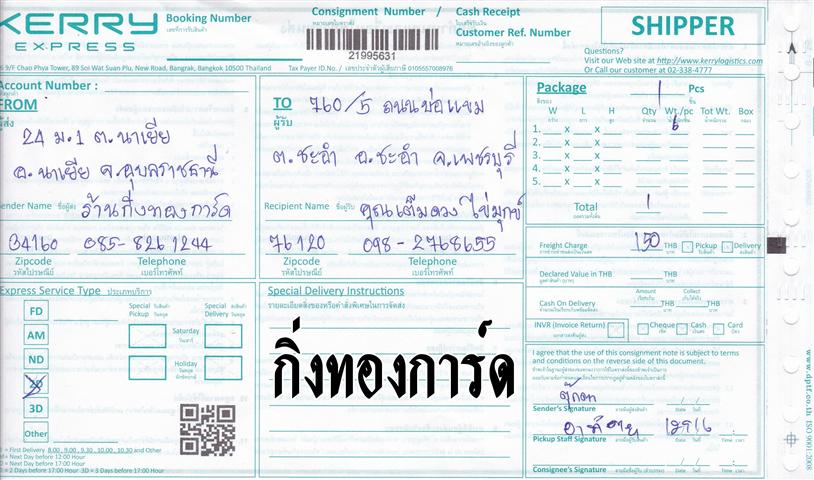 KERRY
EXPRESS
Booking Number
เลขที่การรับสินค้า
Consignment Number /
หมายเลขใบตราส่ง
Cash Receipt
ใบเสร็จรับเงิน
Customer Ref. Number
หมายเลขอ้างอิงของลูกค้า
21995631
SHIPPER
Questions?
Visit our Web site at http://www.kerrylogistics.com
Or Call our customer at 02-338-4777
9/F Chao Phya Tower, 89 Soi Wat Suan Plu, New Road, Bangrak, Bangkok 10500 Thailand
Tax Payer ID.No. / เลขประจำตัวผู้เสียภาษี 0105557008976
Account Number :
FROM
ผู้ส่ง
24 ม.1 ต.นาเยีย
อ.นาเยีย จ.อุบลราชธานี
Sender Name ชื่อผู้ส่ง ร้านกิ่งทองการ์ด
34160 085-826 1244
Zipcode Telephone
รหัสไปรษณีย์ เบอร์โทรศัพท์
TO
ผู้รับ
760/5 ถนนบ่อแขม
ต.ชะอำ อ.ชะอำ จ.เพชรบุรี
Recipient Name ชื่อผู้รับ คุณเต็มดวง ไข่มุกข์
76120 098-2768655
Zipcode Telephone
รหัสไปรษณีย์ เบอร์โทรศัพท์
Package 1 Pcs
สิ่งของ ชิ้น
W L H Qty Wt./pc Tot Wt. Box
กว้าง ยาว สูง จำนวน
1. x x 6
2. x x
3. x x
4. x x
5. x x
Total 1
ยอดรวมทั้งสิ้น
Freight Charge 150 THB Pickup Delivery
บาท
Declared Value in THB THB
มูลค่าสินค้า (บาท) บาท
Amount Collect
Cash On Delivery THB
INVR (Invoice Return) Cheque Cash Card
เช็ค เงินสด บัตร
Express Service Type ประเภทบริการ
FD
AM
ND
2D
3D
Other
Special Pickup
รับสินค้า วันหยุด
Special Delivery
ส่งสินค้า วันหยุด
Saturday
วันเสาร์
Holiday
วันหยุด
= First Delivery 8.00 , 9.00 , 9.30 , 10.00 , 10.30 and Other
= Next Day before 12:00 Hour
= Next Day before 17:00 Hour
= 2 Days before 17:00 Hour 3D = 3 Days before 17:00 Hour
Special Delivery Instructions
รายละเอียดสิ่งของหรือคำสั่งพิเศษในการจัดส่ง
กิ่งทองการ์ด
I agree that the use of this consignment note is subject to terms
and conditions on the reverse side of this document.
ตุ๊กตา
Sender's Signature ลายมือชื่อผู้ส่งสินค้า Date วันที่
Pickup Staff Signature Date วันที่ Time เวลา
Consignee's Signature Date วันที่ Time เวลา
www.dptf.co.th ISO 9001:2008